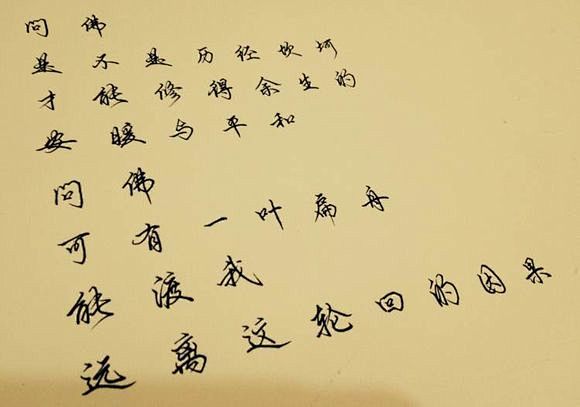 问佛
是不是历径坎坷
才能修得余生的
安暖与平和
问佛
可有一叶扁舟
能渡我
远离这轮回的因果